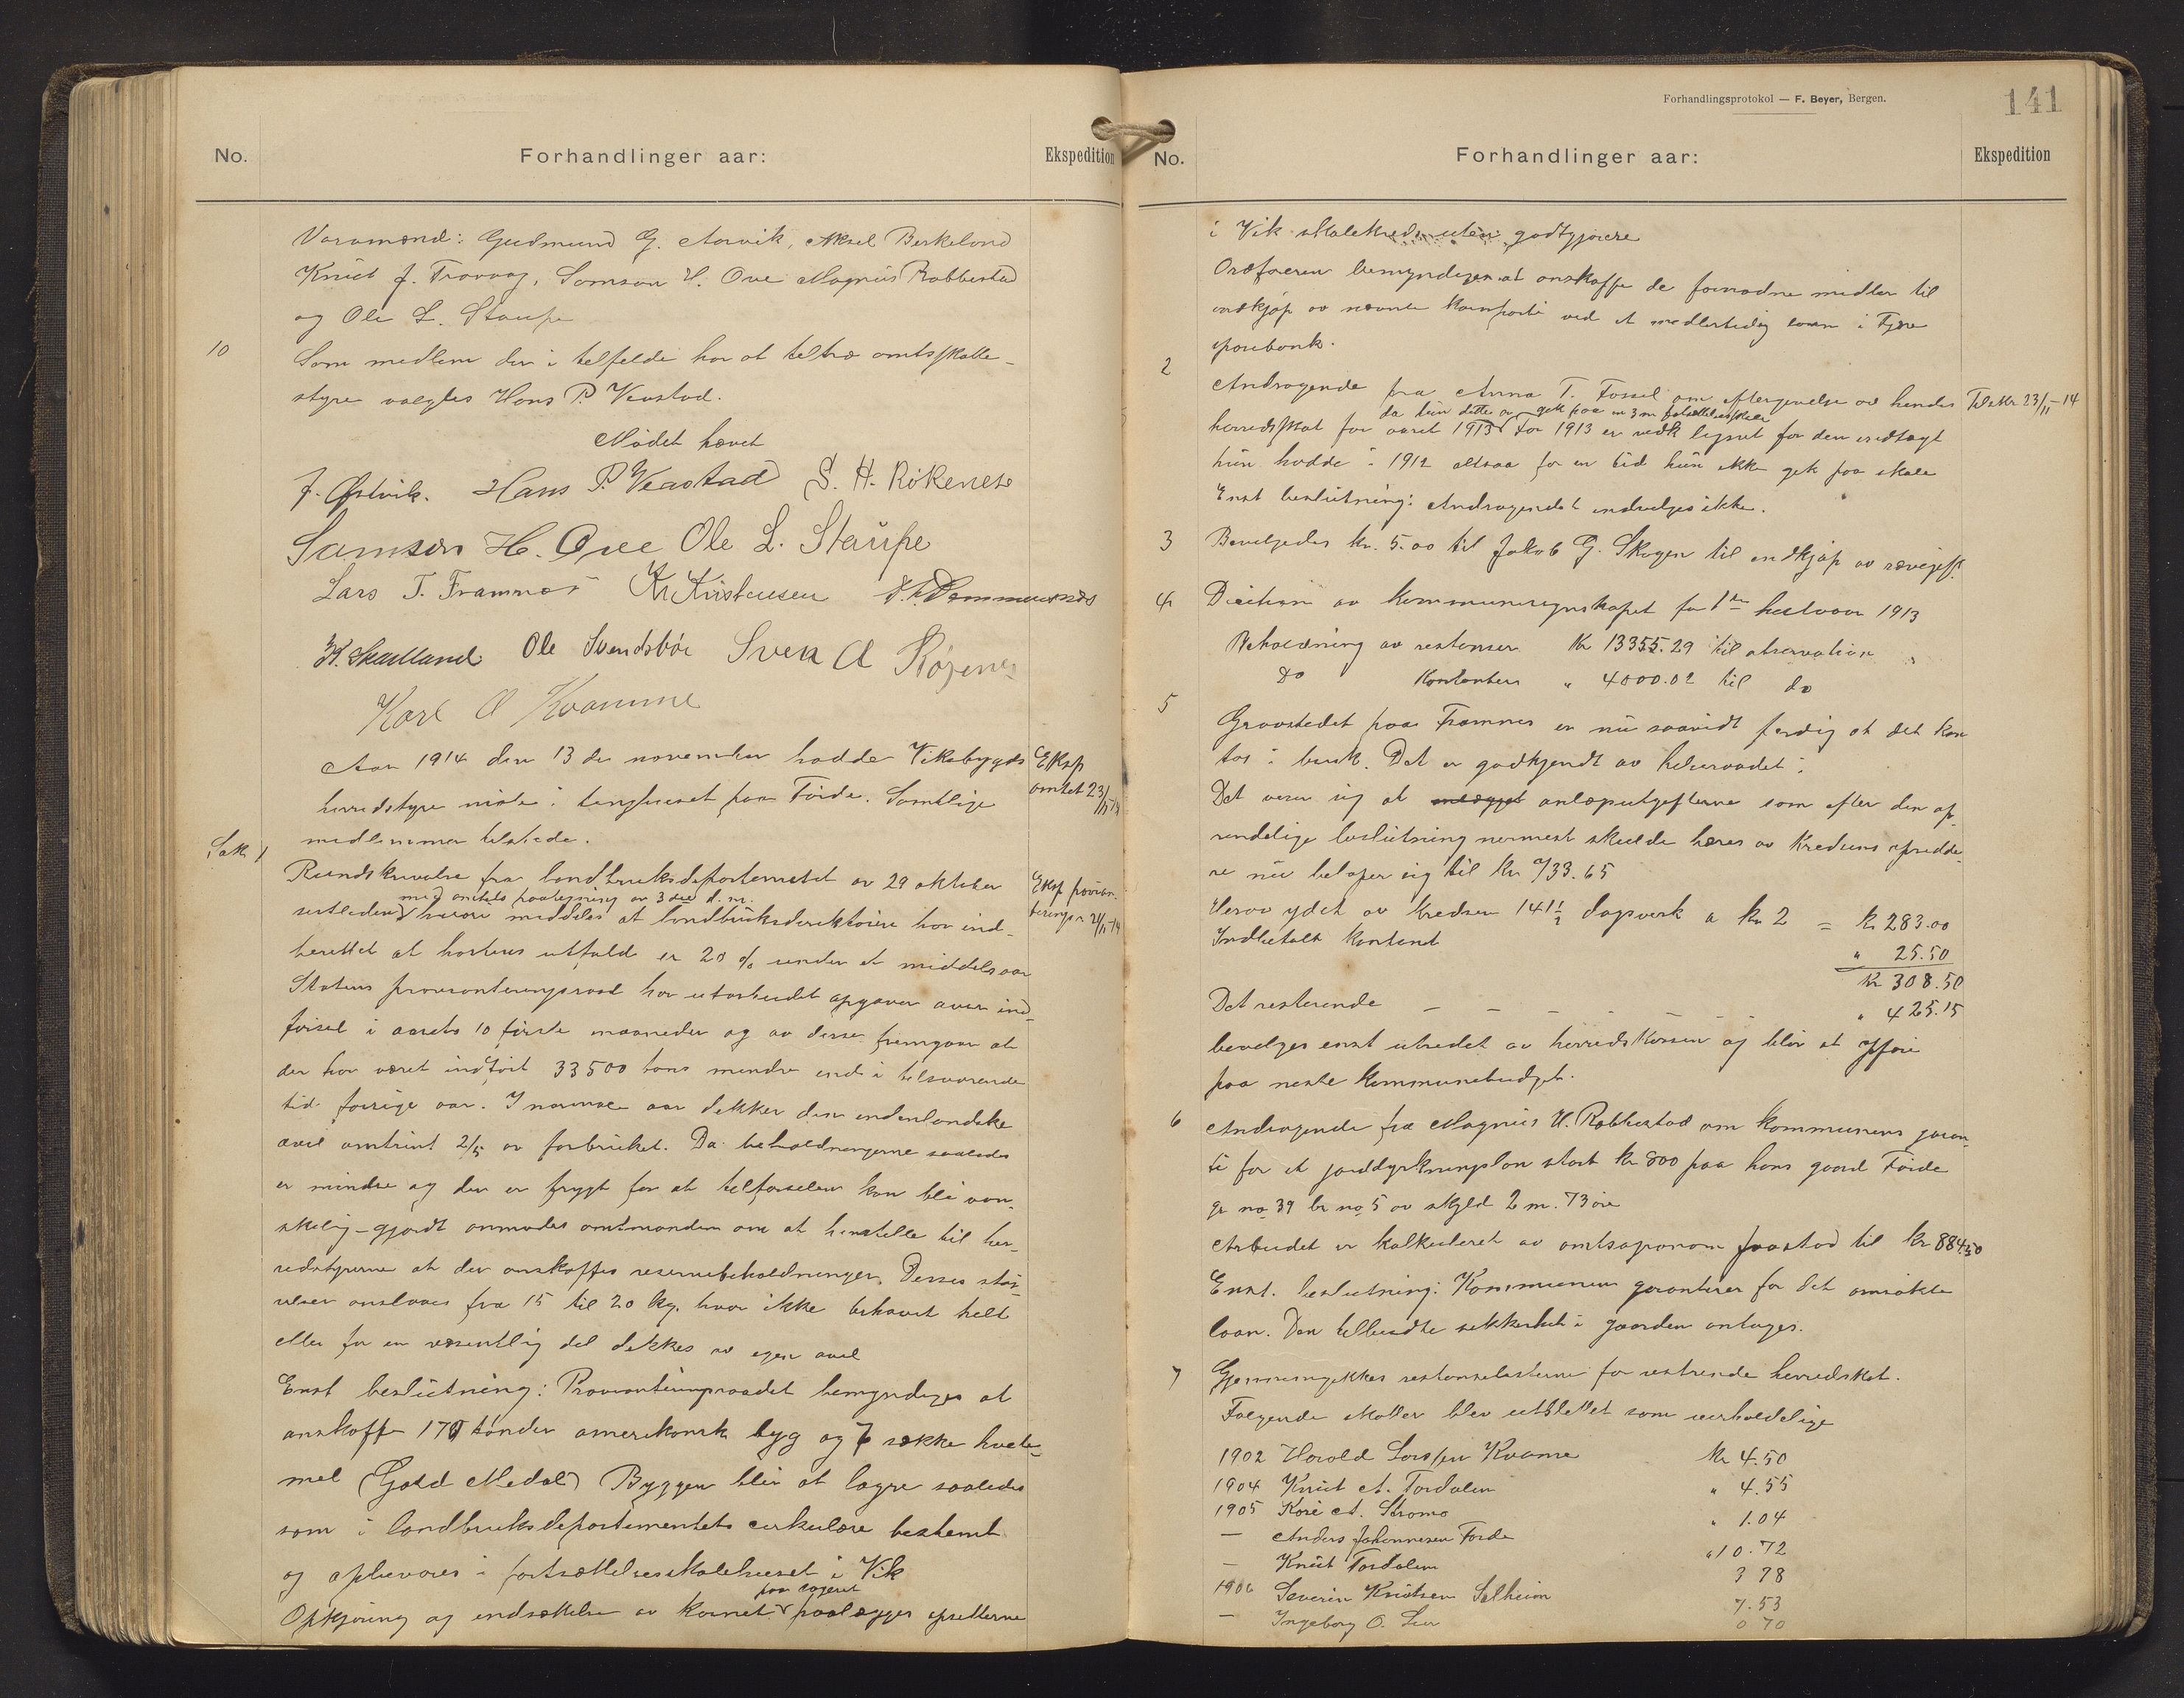 No.
Forhandlinger aar:
Ekspedition
Varamænd: Gudmund G. Aarvik, Aksel Berkeland
Knut J. Trovaag, Samson H. Ove Magnus Rabbestad
og Ole L. Staupe
10
Som medlem der i tilfelde har at tiltræ amtsskatte-
styre valgtes Hans P. Veastad.
Mødet hævet
J. Østvik. Hans P. Veastad S. H. Rökenes
Samson H. Ove Ole L. Staupe
Lars T. Framnes Kr Kristensen
H. Skadland Ole Svendsbøe Sven A Røkenes
Karl A Kvamme
Aar 1914 den 13 de november hadde Vikebygds
herredstyre møte i tinghuset paa Førde. Samtlige
medlemmer tilstede.
Eksp
amtet 23/11-14
Sak 1
Rundskrivelse fra landbruksdepartementet av 29 oktober
med amtets paategning av 3 dee d. m.
sistleden hvori meddeles at landbruksdirektøren har ind-
berettet at høstens utfald er 20 % under et middelsaar
Eksp provian-
teringsr 21/11-14
Statens provianteringsraad har utarbeidet opgaver over ind-
førsel i aarets 10 første maaneder og av disse fremgaar at
der har været indført 33500 tons mindre end i tilsvarende
tid forrige aar. I normale aar dekker den indenlandske
avel omtrint 2/5 av forbruket. Da beholdningerne saaledes
er mindre og der er frygt for at tilførselen kan bli van-
skelig-gjordt anmodes amtmanden om at henstille til her-
redstyrerne at der anskaffes reservebeholdninger. Disses stør-
relser anslaaes fra 15 til 20 kg. hvor ikke behovet helt
eller for en væsentlig del dekkes av egen avel
Enst beslutning: Provianteringsraadet bemyndiges at
anskaffe 170 tønder amerikansk byg og 7 sække hvete-
mel (Gold Medal) Byggen blir at lagre saaledes
som i landbruksdepartementets cirkulære bestemt
og opbevares i fortsættelsesskolehuset i Vik
paa lageret
Opkjøring og indsækkelse av kornet paalægges opsitterne
Forhandlingsprotokol — F. Beyer, Bergen.
141
No.
Forhandlinger aar:
Ekspedition
i Vik skolekreds uten godtgjørelse
Ordføreren bemyndiges at anskaffe de fornødne midler til
indkjøp av nævnte kornparti ved et midlertidig laan i Fjære
sparebank.
2
Andragende fra Anna T. Fossel om eftergivelse av hendes
Tilskr 23/11-14
da hun dette aar gik paa en 3 m fortsættelsesskole
herredsskat for aaret 1913 For 1913 er vedk lignet for den indtægt
hun hadde i 1912 altsaa for en tid hun ikke gik paa skole
Enst beslutning: Andragendet indvilges ikke.
3
Bevilgedes kr. 5.00 til Jakob G. Skogen til indkjøp av rævegift.
4
Decision av kommuneregnskapet for 1ste halvaar 1913
Beholdning av restanser Kr 13355.29 til observation
Do Kontanter " 4000.02 til do
5
Gravstedet paa Framnes er nu saavidt færdig at det kan
tas i bruk. Det er godkjendt av helseraadet.
Det viser sig at anlægsutgifterne som efter den op-
rindelige beslutning nermest skulde bæres av kredsens opsidde-
re nu beløper sig til kr. 733.65
Herav ydet av kredsen 141½ dagsverk a kr 2 = kr 283.00
Indbetalt kontant " 25.50
Kr 308.50
Det resterende - - - - - - " 425.15
bevilges enst utredet av herredskassen og blir at opføre
paa neste kommunebudget.
6
Andragende fra Magnus H. Rabbestad om kommunens garan-
ti for et jorddyrkningslaan stort kr 800 paa hans gaard Førde
gr no 39 br no 5 av skyld 2 m. 73 øre
Arbeidet er kalkuleret av amtsagronom Faastad til kr 884.50
Enst. beslutning: Kommunen garanterer for det ansøkte
laan. Den tilbudte sikkerhet i gaarden antages.
7
Gjennemgikkes restanselisterne for restrende herredskat.
Følgende skatter blev utslettet som uerholdelige
1902 Harald Larssen Kvame Kr 4.50
1904 Knut A. Tordalen " 4.55
1905 Kari A. Strømø " 1.04
— Anders Johannesen Førde " 10.72
— Knut Tordalen 3 78
1906 Severin Knutsen Solheim 7.53
— Ingeborg O. Lier 0 70